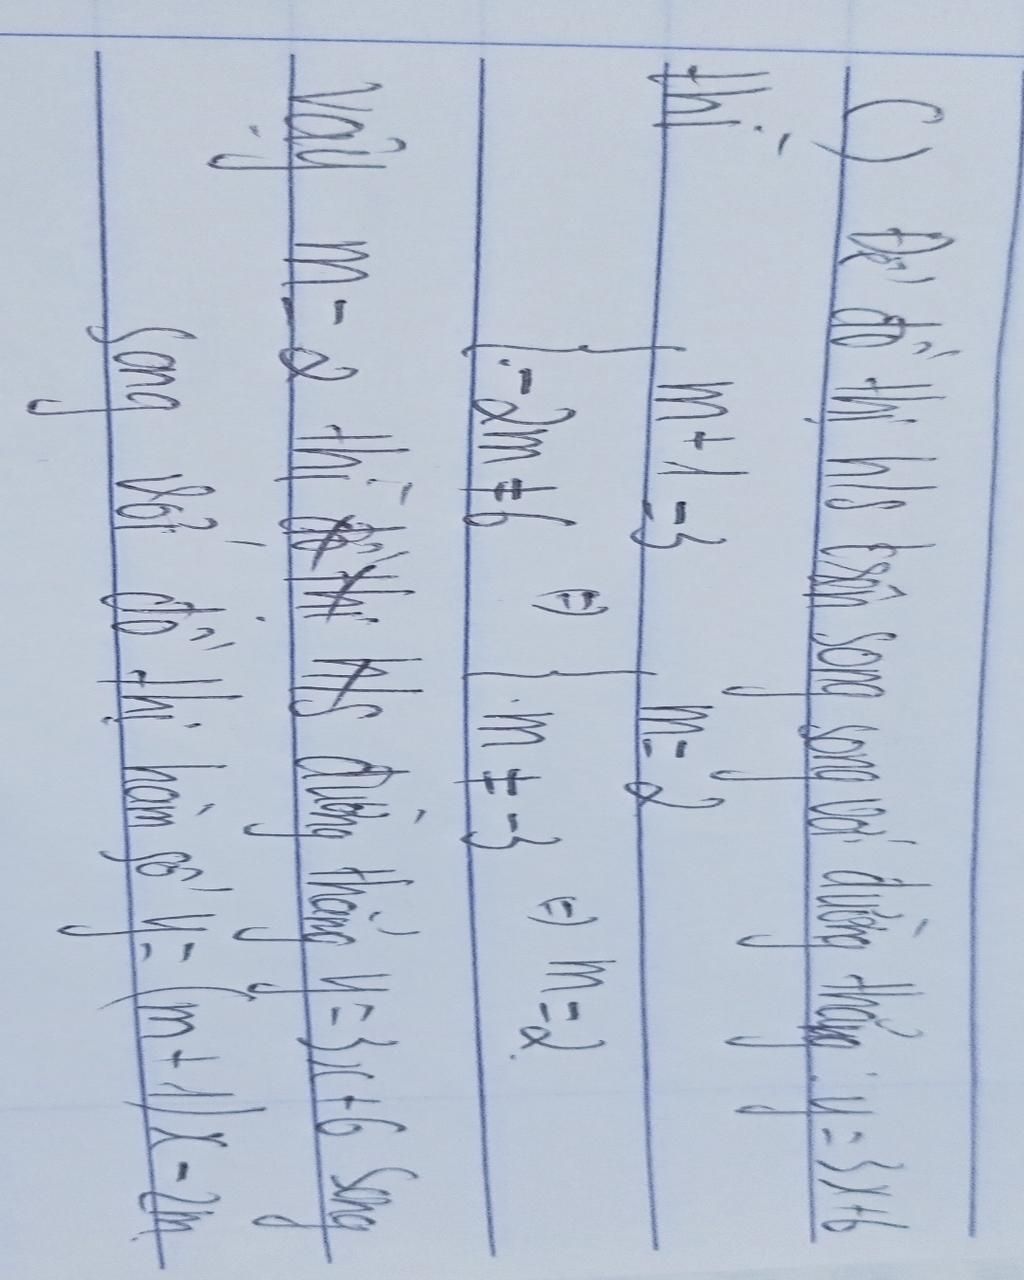 c) Để đồ thị h/s trên song song với đường thẳng y = 3x+6
thì
{ m+1 = 3
{ -2m ≠ 6 ⇔ { m = 2
{ m ≠ -3 ⇔ m = 2
Vậy m = 2 thì đường thẳng y = 3x+6 song
song với đồ thị hàm số y = (m+1)x - 2m